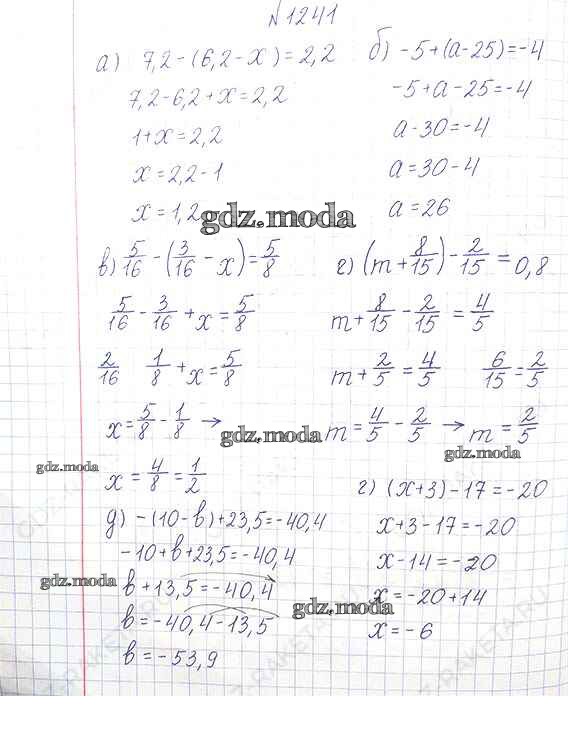 №1241
а) 7,2-(6,2-x)=2,2
7,2-6,2+x=2,2
1+x=2,2
x=2,2-1
x=1,2
б) -5+(a-25)=-4
-5+a-25=-4
a-30=-4
a=30-4
a=26
gdz.moda
в) 5/16 - (3/16 - x) = 5/8
5/16 - 3/16 + x = 5/8
2/16 1/8 + x = 5/8
x = 5/8 - 1/8 →
x = 4/8 = 1/2
г) (m + 8/15) - 2/15 = 0,8
m + 8/15 - 2/15 = 4/5
m + 2/5 = 4/5 6/15 = 2/5
m = 4/5 - 2/5 → m = 2/5
gdz.moda
gdz.moda
gdz.moda
д) -(10-b)+23,5=-40,4
-10+b+23,5=-40,4
b+13,5=-40,4
b=-40,4-13,5
b=-53,9
г) (x+3)-17=-20
x+3-17=-20
x-14=-20
x=-20+14
x=-6
gdz.moda
gdz.moda
Z-RAKETA.RU
Z-RAKETA.RU